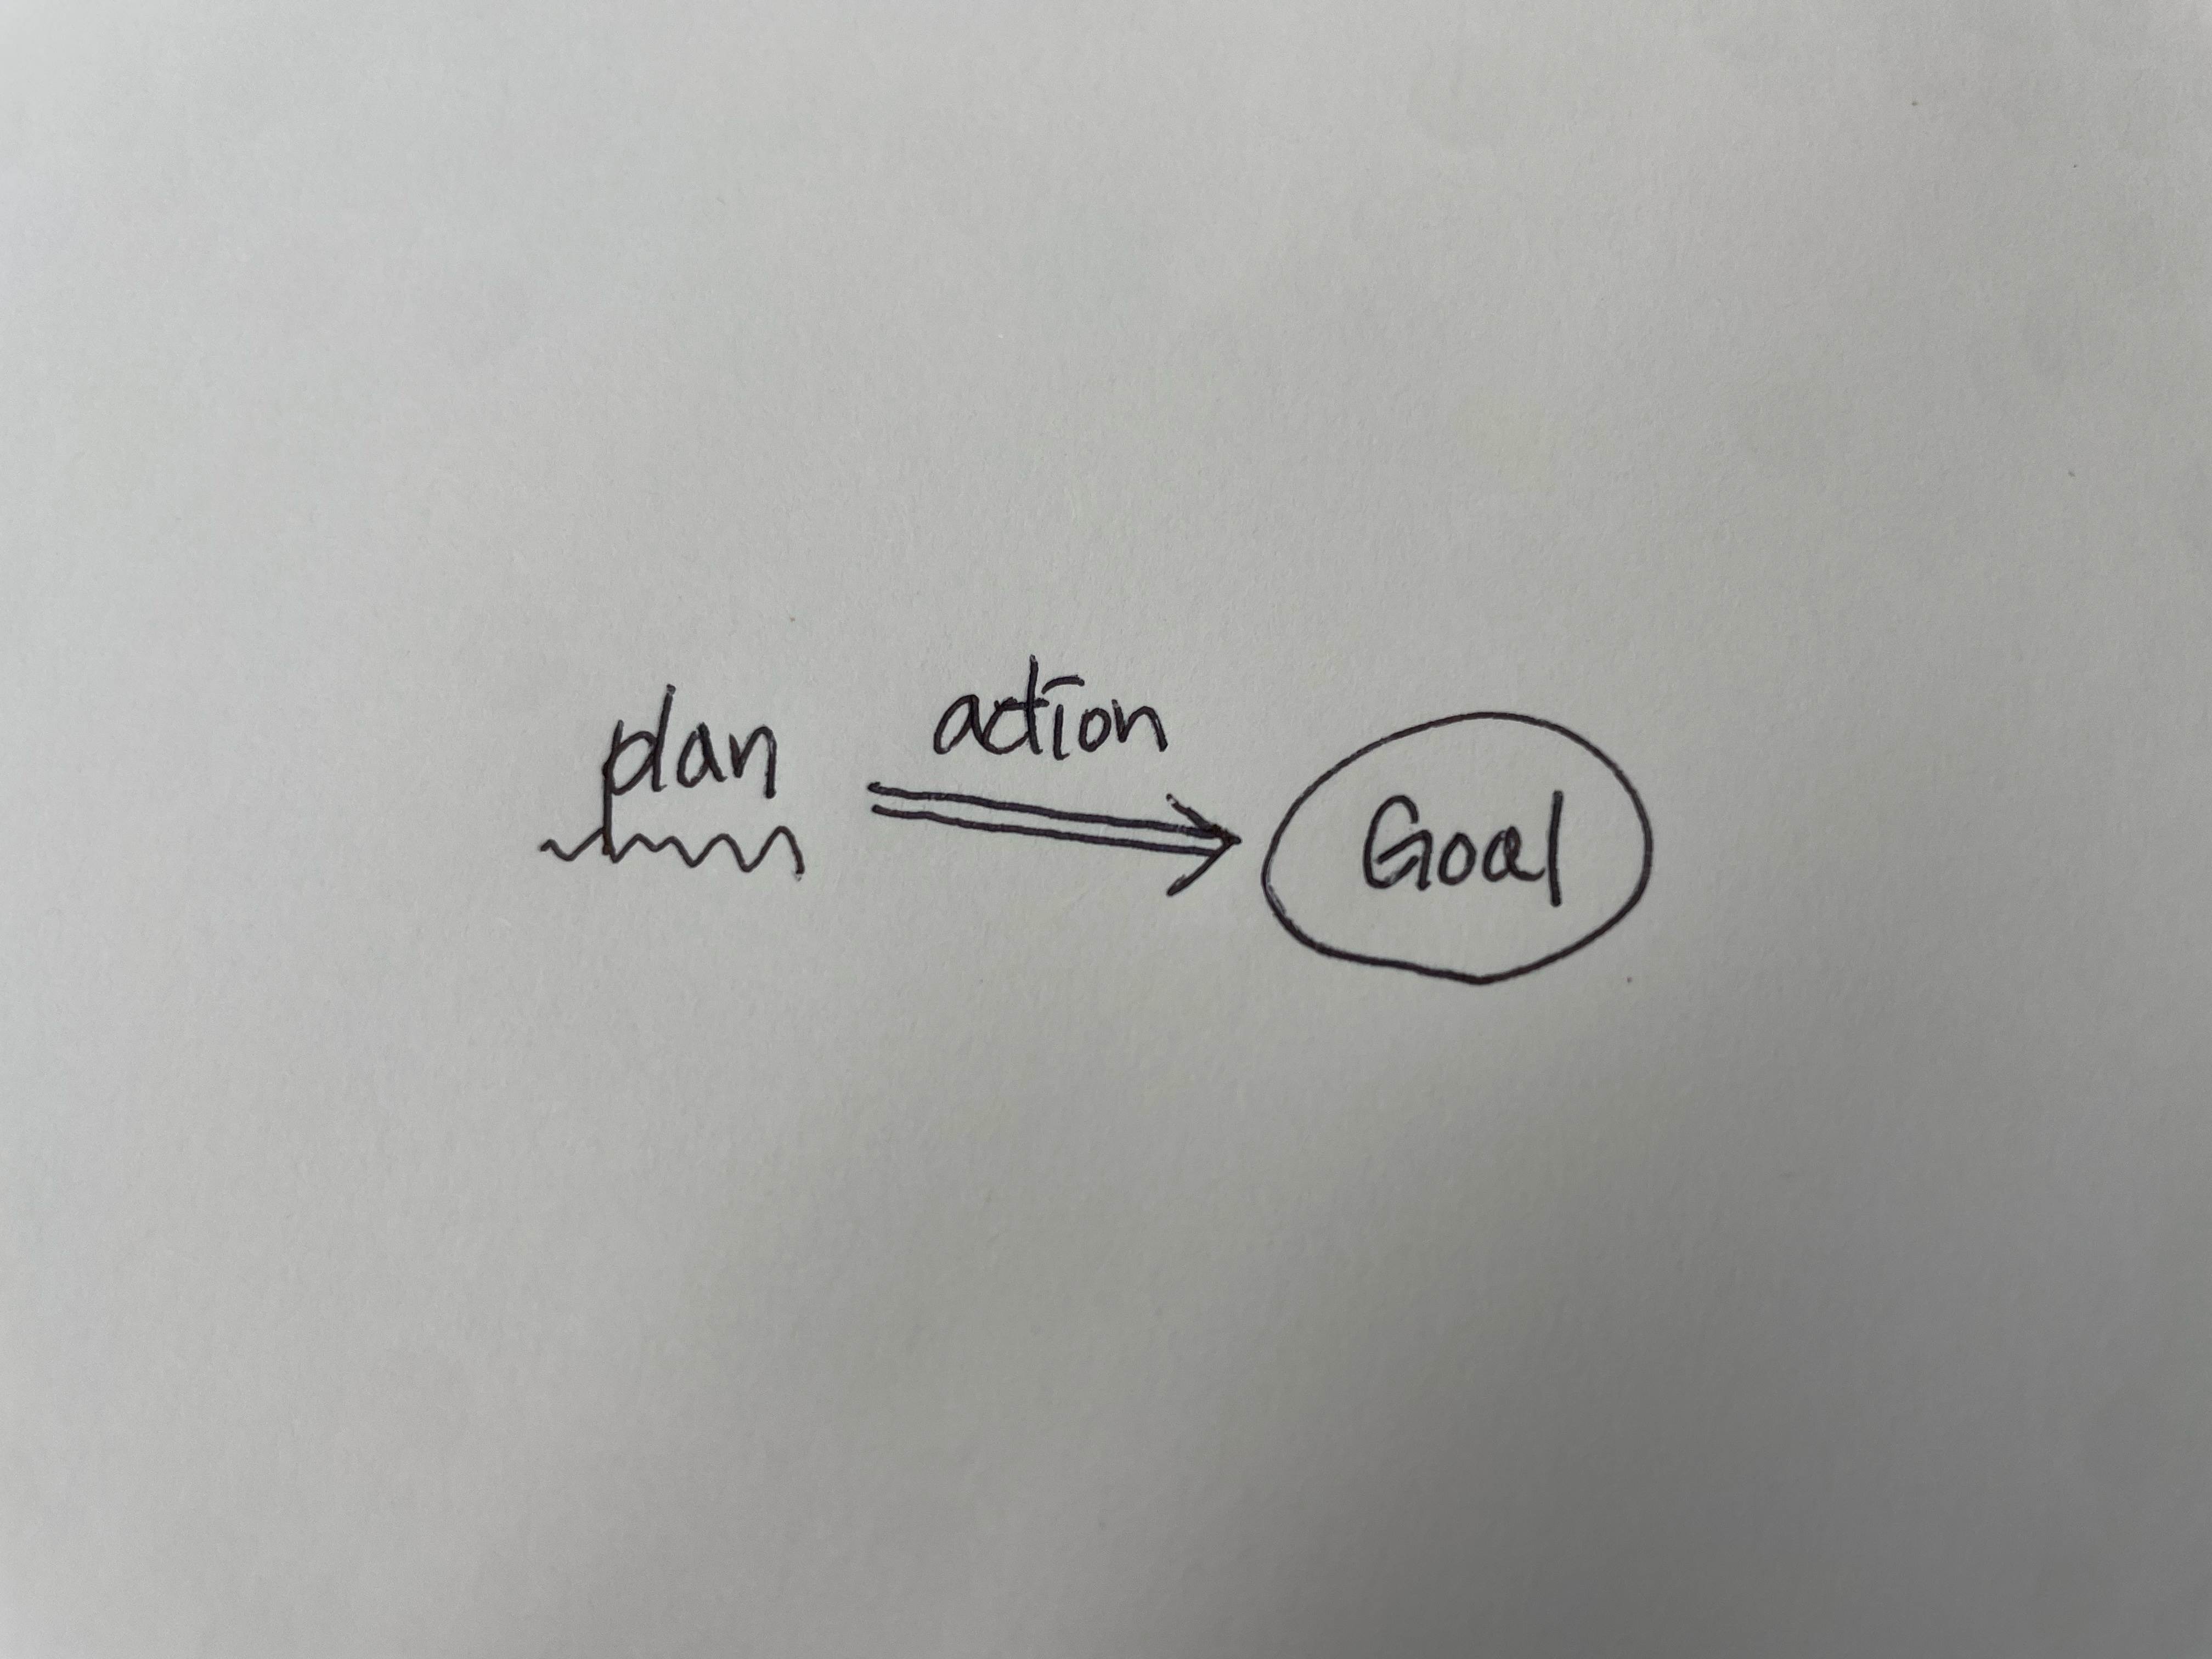 plan
action
Goal